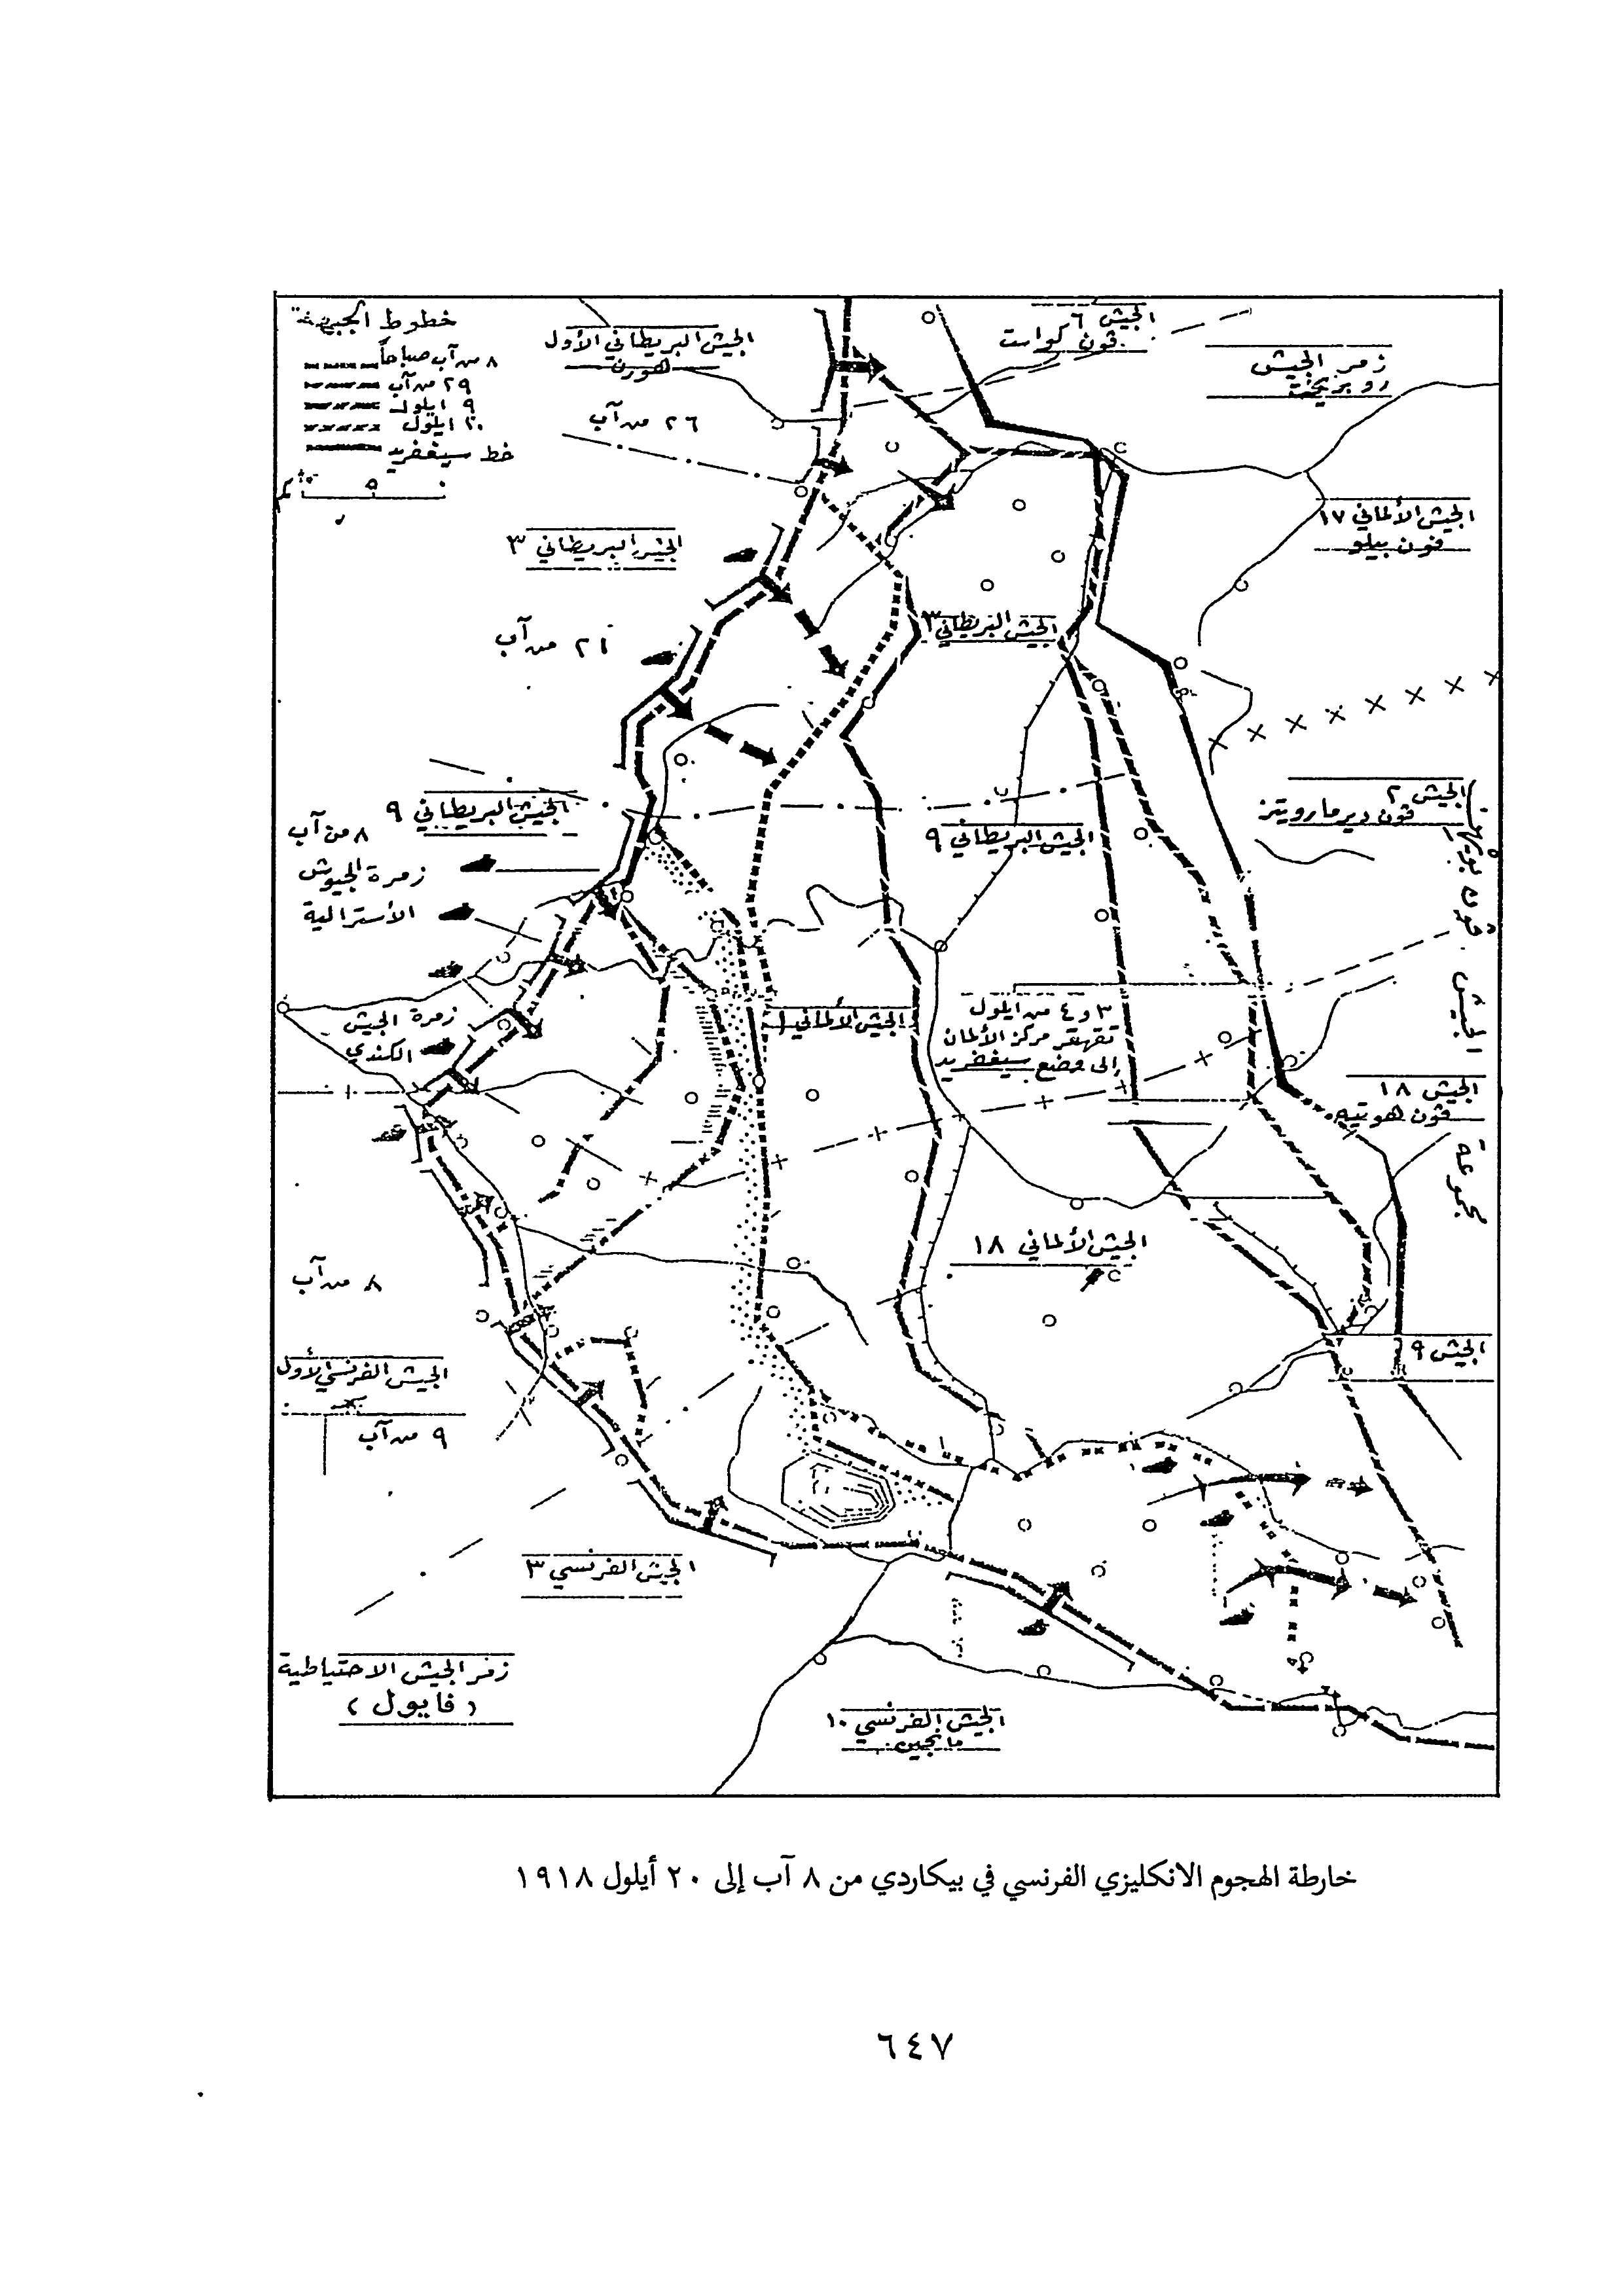 خطوط الجبهة
٨ من آب صباحاً
٢٩ من آب
٩ ايلول
٢٠ ايلول
خط سيغفريد
الجيش البريطاني الأول
هورن
٢٦ من آب
الجيش ٦
ڤون كواست
زمر الجيش
الجيش الألماني ١٧
ڤون بيلو
الجيش البريطاني ٣
٢١ من آب
الجيش البريطاني ٣
الجيش البريطاني ٩
٨ من آب
زمرة الجيوش
الأسترالية
الجيش البريطاني ٩
الجيش ٢
ڤون ديرمارويتز
مجموعة الجيش ڤون
زمرة الجيش
الكندي
الجيش الألماني
٣ و٤ من ايلول
تقهقر مركز الألمان
إلى وضع سيغفريد
الجيش ١٨
ڤون هوتيه
الجيش الألماني ١٨
٨ من آب
الجيش ٩
الجيش الفرنسي الأول
٩ من آب
الجيش الفرنسي ٣
زمر الجيش الاحتياطية
( فايول )
الجيش الفرنسي ١٠
مانجين
خارطة الهجوم الانكليزي الفرنسي في بيكاردي من ٨ آب إلى ٢٠ أيلول ١٩١٨
٦٤٧